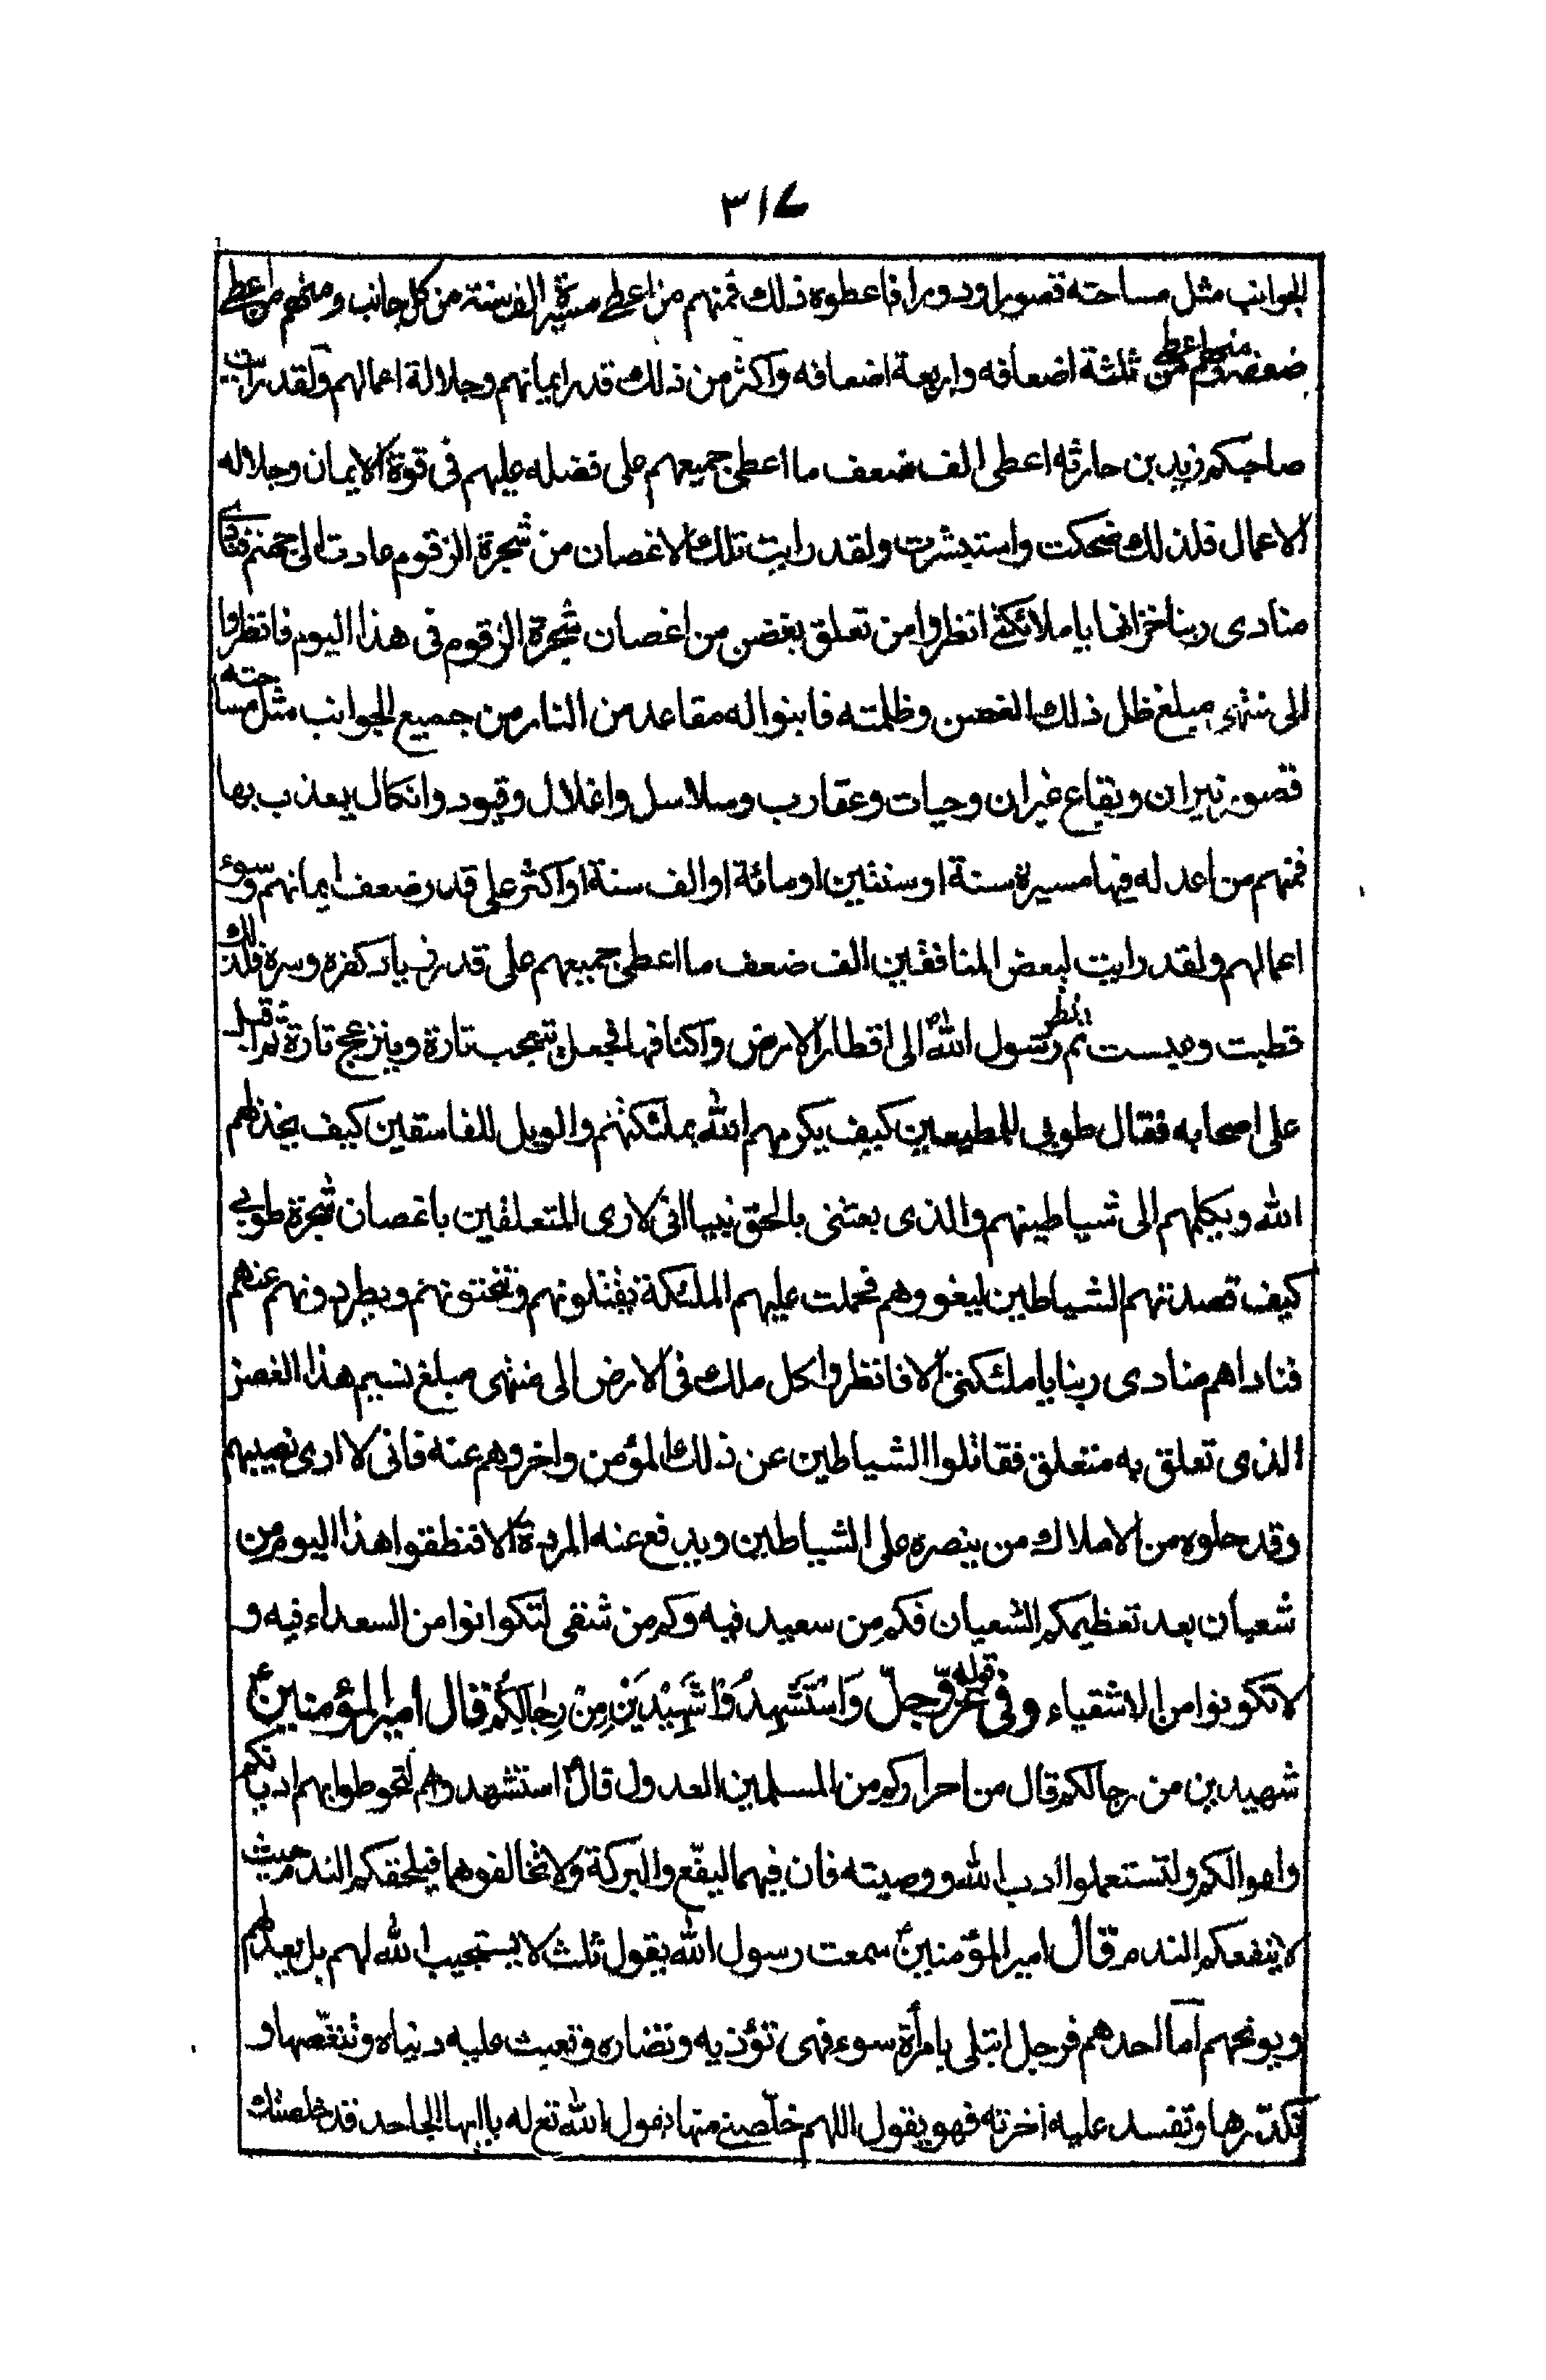 ٣١٤
الجوانب مثل مساحته قصورا ودورا فاعطوه ذلك فمنهم من اعطى مسيرة الف سنة من كل جانب ومنهم من اعطى
ضعفه ومنهم من اعطى ثلثة اضعافه واربعة اضعافه واكثر من ذلك قدر ايمانهم وجلالة اعمالهم ولقد رايت
صاحبكم زيد بن حارثه اعطى الف ضعف ما اعطى جميعهم على فضله عليهم فى قوة الايمان وجلاله
الاعمال فلذلك ضحكت واستبشرت ولقد رايت تلك الاغصان من شجرة الزقوم عادت الى جهنم فنادى
منادى ربنا خزانها يا ملائكتى انظروا من تعلق بغضن من اغصان شجرة الزقوم فى هذا اليوم فانظروا
الى منتهى مبلغ ظل ذلك الغصن وظلمته فابنوا له مقاعد من النار من جميع الجوانب مثل مساحته
قصور نيران وبقاع غيران وحيات وعقارب وسلاسل واغلال وقيود وانكال يعذب بها
فمنهم من اعد له فيها مسيرة سنة او سنتين او مائة او الف سنة او اكثر على قدر ضعف ايمانهم وسوء
اعمالهم ولقد رايت لبعض المنافقين الف ضعف ما اعطى جميعهم على قدر زياد كفره وسره فلذلك
قطبت وعبست ثم نظر رسول الله الى اقطار الارض واكنافها فجعل يتعجب تارة وينزعج تارة ثم اقبل
على اصحابه فقال طوبى للمطيعين كيف يكرمهم الله بملئكتهم والويل للفاسقين كيف يخذلهم
الله ويكلهم الى شياطينهم والذى بعثنى بالحق نبيا انى لارى المتعلقين باغصان شجرة طوبى
كيف قصدتهم الشياطين ليغووهم فحملت عليهم الملئكة يقتلونهم وتختنونهم ويطردونهم عنهم
فناداهم منادى ربنا يا ملئكتى الا فانظروا كل ملك فى الارض الى منتهى مبلغ نسيم هذا الغصن
الذى تعلق به متعلق فقاتلوا الشياطين عن ذلك المؤمن واخروهم عنه فانى لا ارى نصيبهم
وقد حلوه من الاملاك من ينصره على الشياطين ويدفع عنه المردة الا فنطقوا هذا اليوم من
شعبان بعد تعظيمكم الشعبان فكم من سعيد فيه وكم من شقى لتكوانوا من السعداء فيه و
لا تكونوا من الاشقياء وفى قوله عزّ وجلّ وَاسْتَشْهِدُوْا شَهِيْدَيْنِ مِنْ رِجٰالِكُمْ قال امير المؤمنينؑ
شهيدين من رجالكم قال من احراركم من المسلمين العدول قالؑ استشهدوهم لتحوطوا بهم اديانكم
واموالكم ولتستعملوا ادب الله ووصيته فان فيهما النفع والبركة ولا تخالفوهما فيلحقكم الندم حيث
لا ينفعكم الندم قال امير المؤمنينؑ سمعت رسول الله يقول ثلث لا يستجيب الله لهم بل يعذبهم
ويوبخهم آما احدهم فرجل ابتلى بامرأة سوء فهى تؤذيه وتضاره وتعيث عليه دنياه وتنغّصها و
تكدّرها وتفسد عليه آخرته فهو يقول اللهم خلّصنى منها يقول الله تع له يا ايها الجاحد قد خلصتك